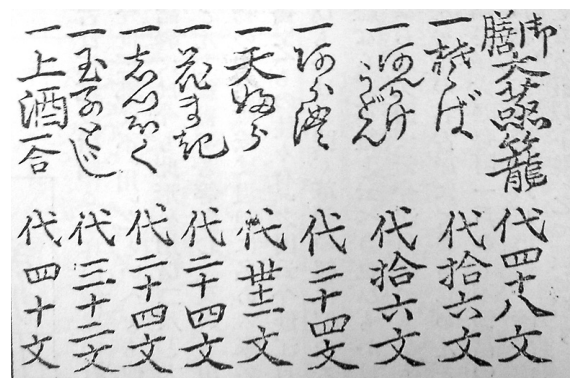 御膳大蒸籠 代四十八文
一そば 代拾六文
一あんかけうどん 代拾六文
一あられ 代二十四文
一天婦ら 代卅二文
一花まき 代二十四文
一しつぽく 代二十四文
一玉子とじ 代三十二文
一上酒一合 代四十文